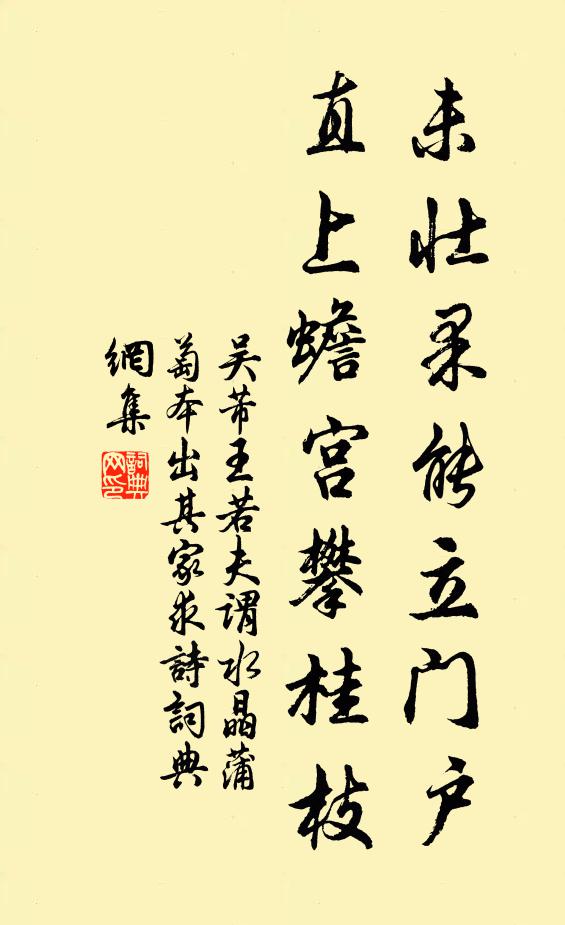 未壮果能立门户
直上蟾宫攀桂枝
吴芾王若夫谓水晶蒲
萄本出其家求詩詞典
網集
詞典网印